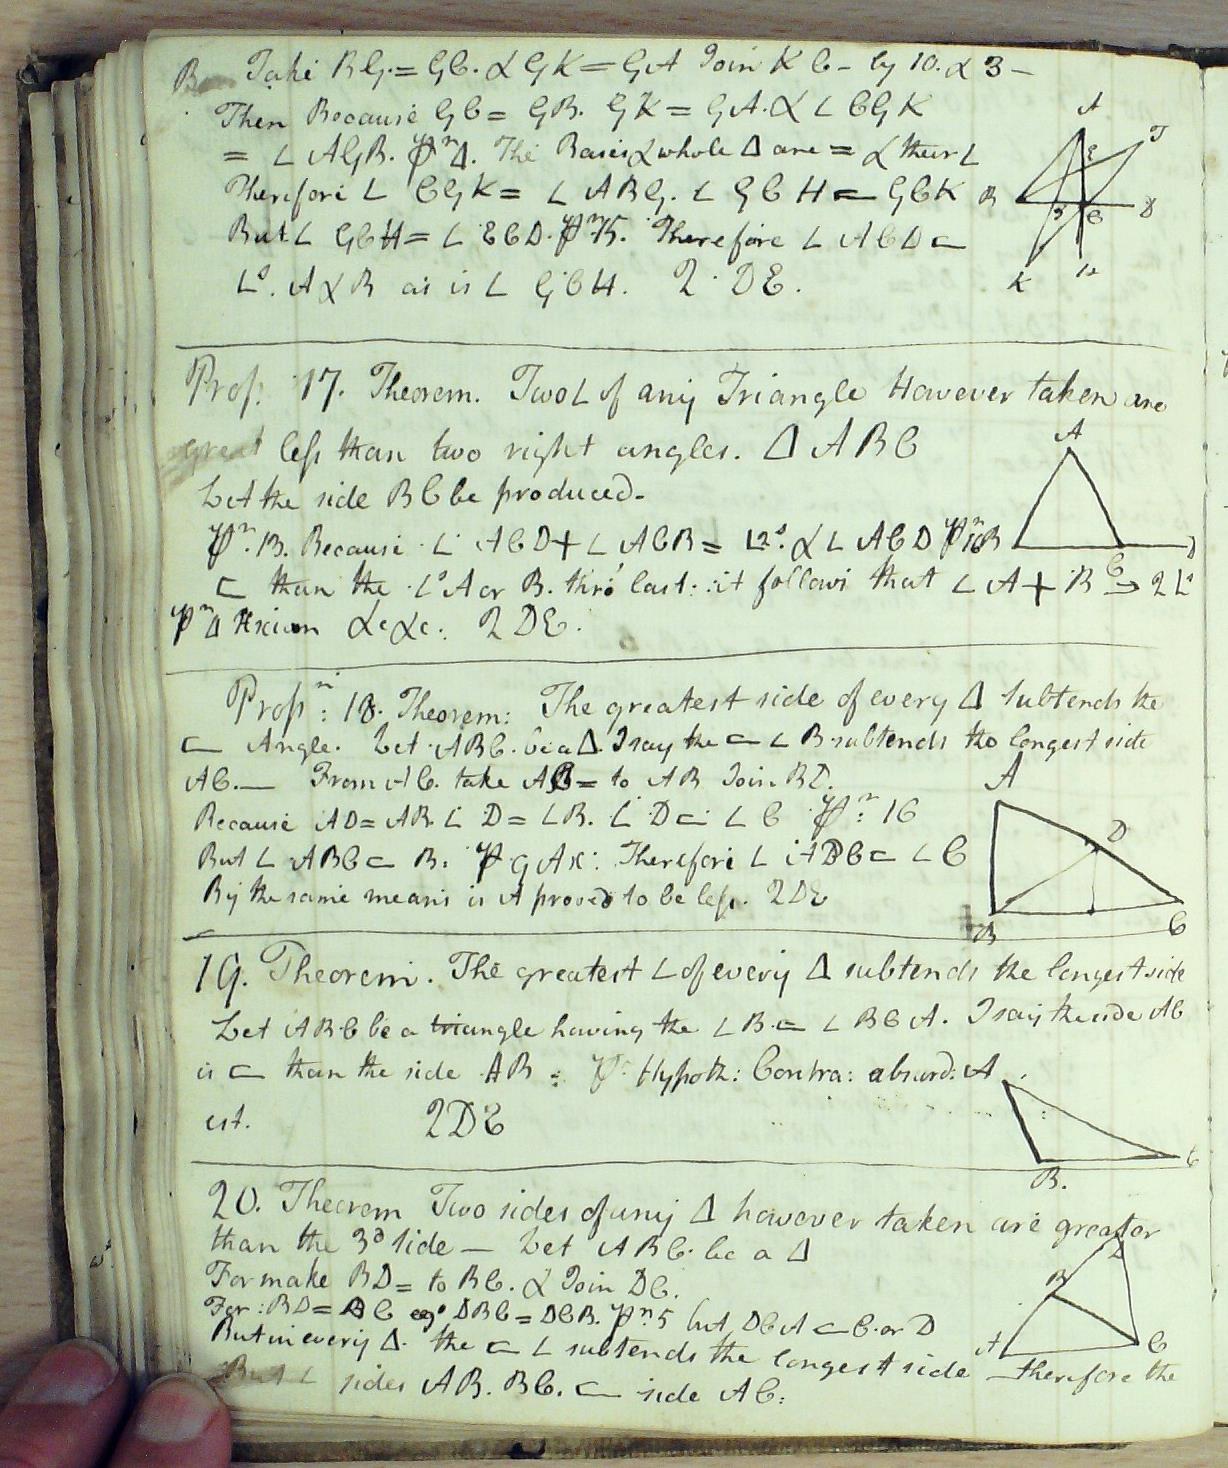 Take BG = GC. & GK = GA Join K C - by 10. & 3 -
Then Because GC = GB. GK = GA. & ∠ CGK
= ∠ AGB. Pn Δ. The Bases & whole Δ are = & their ∠
Therefore ∠ CGK = ∠ ABG. ∠ GCH ⊏ GCK
But ∠ GCH = ∠ ECD. Pn 15. Therefore ∠ ACD ⊏
∠s. A & B as is ∠ GCH. 2. DE.
A
E
F
B
G
C
D
K
H
Prop. 17. Theorem. Two ∠ of any Triangle However taken are
great less than two right angles. Δ ABC
Let the side BC be produced-
Pn. 13. Because ∠ ACD + ∠ ACB = 2∟s. & ∠ ACD Pn 16
⊏ than the ∠s A or B. thro' last: it follows that ∠ A + B ⊐ 2 ∟s
Pn Δ Axiom &c &c: 2DE.
A
B
C
D
Propn: 18. Theorem: The greatest side of every Δ subtends the
⊏ Angle. Let ABC. be a Δ. I say the ⊏ ∠ B subtends the longest side
AC.— From AC. take AD = to AB Join BD.
Because AD = AB. ∠ D = ∠ B. ∠ D ⊏ ∠ C Pn: 16
But ∠ ABC ⊏ B. P 9 Ax: Therefore ∠ ABC ⊏ ∠ C
By the same means is A proved to be less. 2DE
A
D
B
C
19. Theorem. The greatest ∠ of every Δ subtends the longest side
Let ABC be a triangle having the ∠ B ⊏ ∠ BCA. I say the side AC
is ⊏ than the side AB : P: Hypoth: Contra: absurd:
est. 2DE
A
B.
C
20. Theorem Two sides of any Δ however taken are greater
than the 3d side — Let ABC be a Δ
For make BD = to BC. & Join DC.
For: BD = BC ergo DBC = DCB. Pn 5 but DCA ⊏ C. or D
But in every Δ. the ⊏ ∠ subtends the longest side — therefore the
But ∠ sides AB. BC. ⊏ side AC:
D
B
A
C